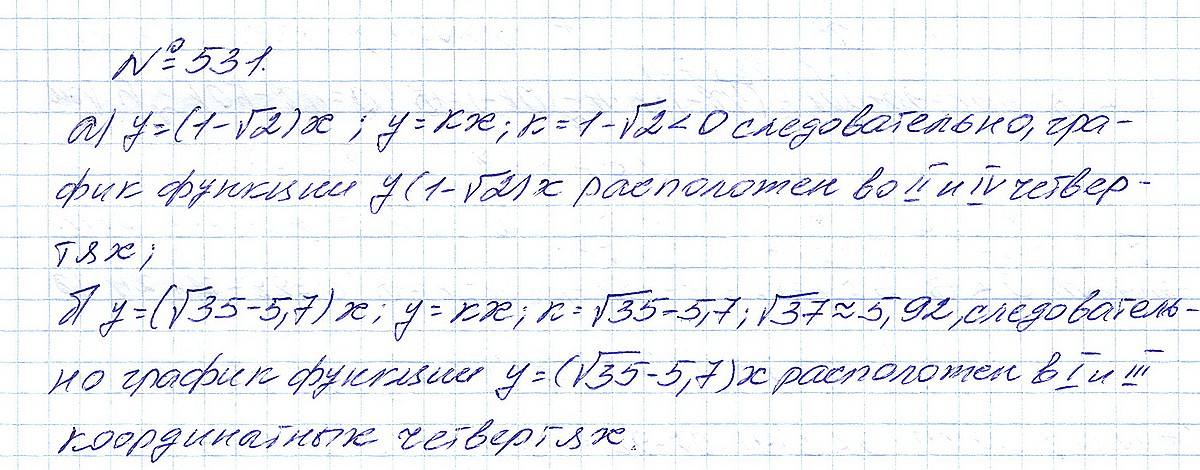 № 531.
а) y=(1-√2)x; y=kx; k=1-√2<0 следовательно, гра-
фик функции y(1-√2)x расположен во II и IV четвер-
тях;
б) y=(√35-5,7)x; y=kx; k=√35-5,7; √37≈5,92, следователь-
но график функции y=(√35-5,7)x расположен в I и III
координатных четвертях.